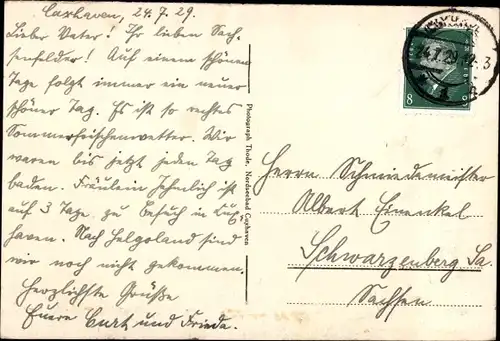 Cuxhaven, 24.7.29.
Lieber Vater! Ihr lieben Sach-
senfelder! Auf einen schönen
Tage folgt immer ein neuer
schöner Tag. Es ist so rechtes
Sommerfrischenwetter. Wir
waren bis jetzt jeden Tag
baden. Fräulein Jehnlich ist
auf 3 Tage zu Besuch in Cux-
haven. Nach Helgoland sind
wir noch nicht gekommen.
Herzlichste Grüße
Euere Curt und Frieda.
Photograph Thode, Nordseebad Cuxhaven
24.7.29
8
Herrn Schmiedemeister
Albert Einenkel
Schwarzenberg Sa.
Sachsen